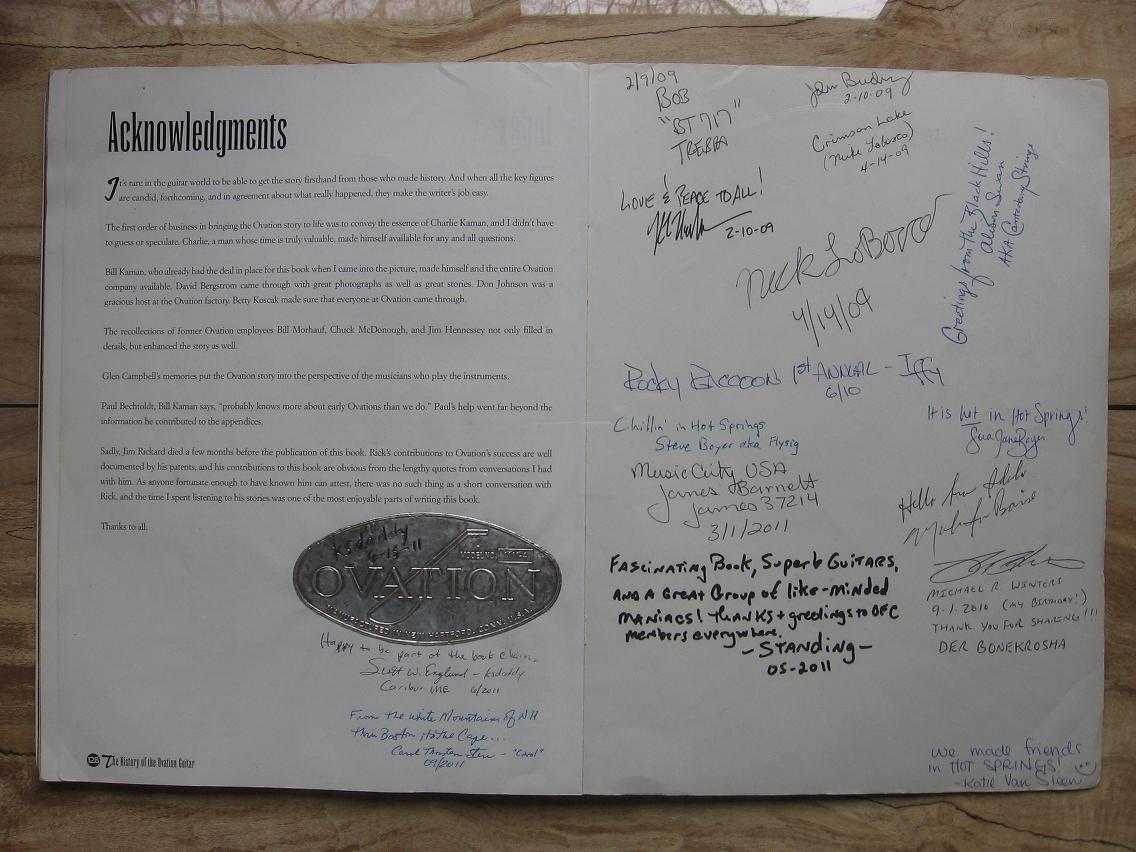 Acknowledgments
It's rare in the guitar world to be able to get the story firsthand from those who made history. And when all the key figures
are candid, forthcoming, and in agreement about what really happened, they make the writer's job easy.
The first order of business in bringing the Ovation story to life was to convey the essence of Charlie Kaman, and I didn't have
to guess or speculate. Charlie, a man whose time is truly valuable, made himself available for any and all questions.
Bill Kaman, who already had the deal in place for this book when I came into the picture, made himself and the entire Ovation
company available. David Bergstrom came through with great photographs as well as great stories. Don Johnson was a
gracious host at the Ovation factory. Betty Koscak made sure that everyone at Ovation came through.
The recollections of former Ovation employees Bill Morhauf, Chuck McDonough, and Jim Hennessey not only filled in
details, but enhanced the story as well.
Glen Campbell's memories put the Ovation story into the perspective of the musicians who play the instruments.
Paul Bechtoldt, Bill Kaman says, "probably knows more about early Ovations than we do." Paul's help went far beyond the
information he contributed to the appendices.
Sadly, Jim Rickard died a few months before the publication of this book. Rick's contributions to Ovation's success are well
documented by his patents, and his contributions to this book are obvious from the lengthy quotes from conversations I had
with him. As anyone fortunate enough to have known him can attest, there was no such thing as a short conversation with
Rick, and the time I spent listening to his stories was one of the most enjoyable parts of writing this book.
Thanks to all.
ksdaddy
6-15-11
MODEL NO.
OVATION
MANUFACTURED IN NEW HARTFORD, CONN. U.S.A.
Happy to be part of the book chain.
Scott W. England - ksdaddy
Caribou ME 6/2011
From the White Mountains of NH
thru Boston to the Cape...
Carol - "Carol"
09/2011
128 The History of the Ovation Guitar
2/9/09
BOB
"BT717"
TREBBA
John
2-10-09
Crimson Lake
(Mike Lobosco)
4-14-09
LOVE & PEACE TO ALL!
2-10-09
Greetings from the Black Hills!
Alison Swan
AKA Canterbury Strings
NICK LoBosco
4/14/09
Rocky Raccoon 1st ANNUAL -
6/10
Chillin' in Hot Springs
Steve Boyer aka Flysig
It is hot in Hot Springs!
Music City USA
James Barnett
james37214
3/1/2011
Hello from
FASCINATING BOOK, SUPERB GUITARS,
AND A GREAT GROUP OF like-minded
MANIACS! THANKS + greetings to OFC
members everywhere.
- STANDING -
05-2011
MICHAEL R. WINTERS
9-1-2010 (MY BIRTHDAY!)
THANK YOU FOR SHARING!!!
DER BONEKROSHA
We made friends
in HOT SPRINGS!
- Katie Van